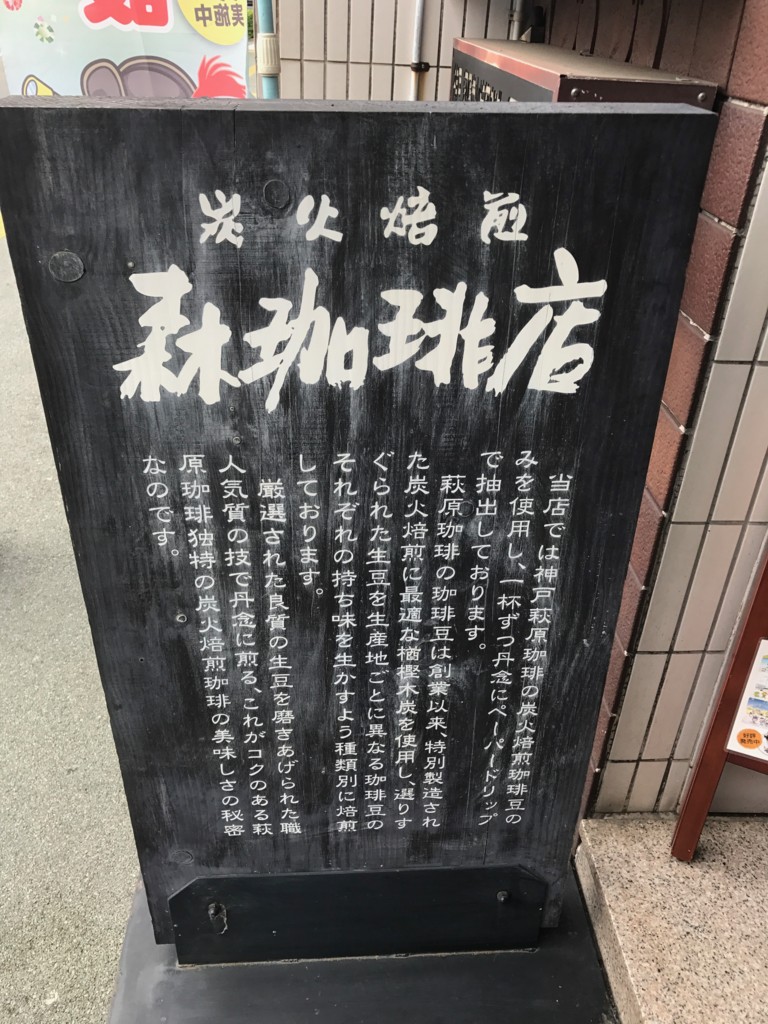 実施中
炭火焙煎
森珈琲店
当店では神戸萩原珈琲の炭火焙煎珈琲豆の
みを使用し、一杯ずつ丹念にペーパードリップ
で抽出しております。
萩原珈琲の珈琲豆は創業以来、特別製造され
た炭火焙煎に最適な楢樫木炭を使用し、選りす
ぐられた生豆を生産地ごとに異なる珈琲豆の
それぞれの持ち味を生かすよう種類別に焙煎
しております。
厳選された良質の生豆を磨きあげられた職
人気質の技で丹念に煎る、これがコクのある萩
原珈琲独特の炭火焙煎珈琲の美味しさの秘密
なのです。
好評
発売中